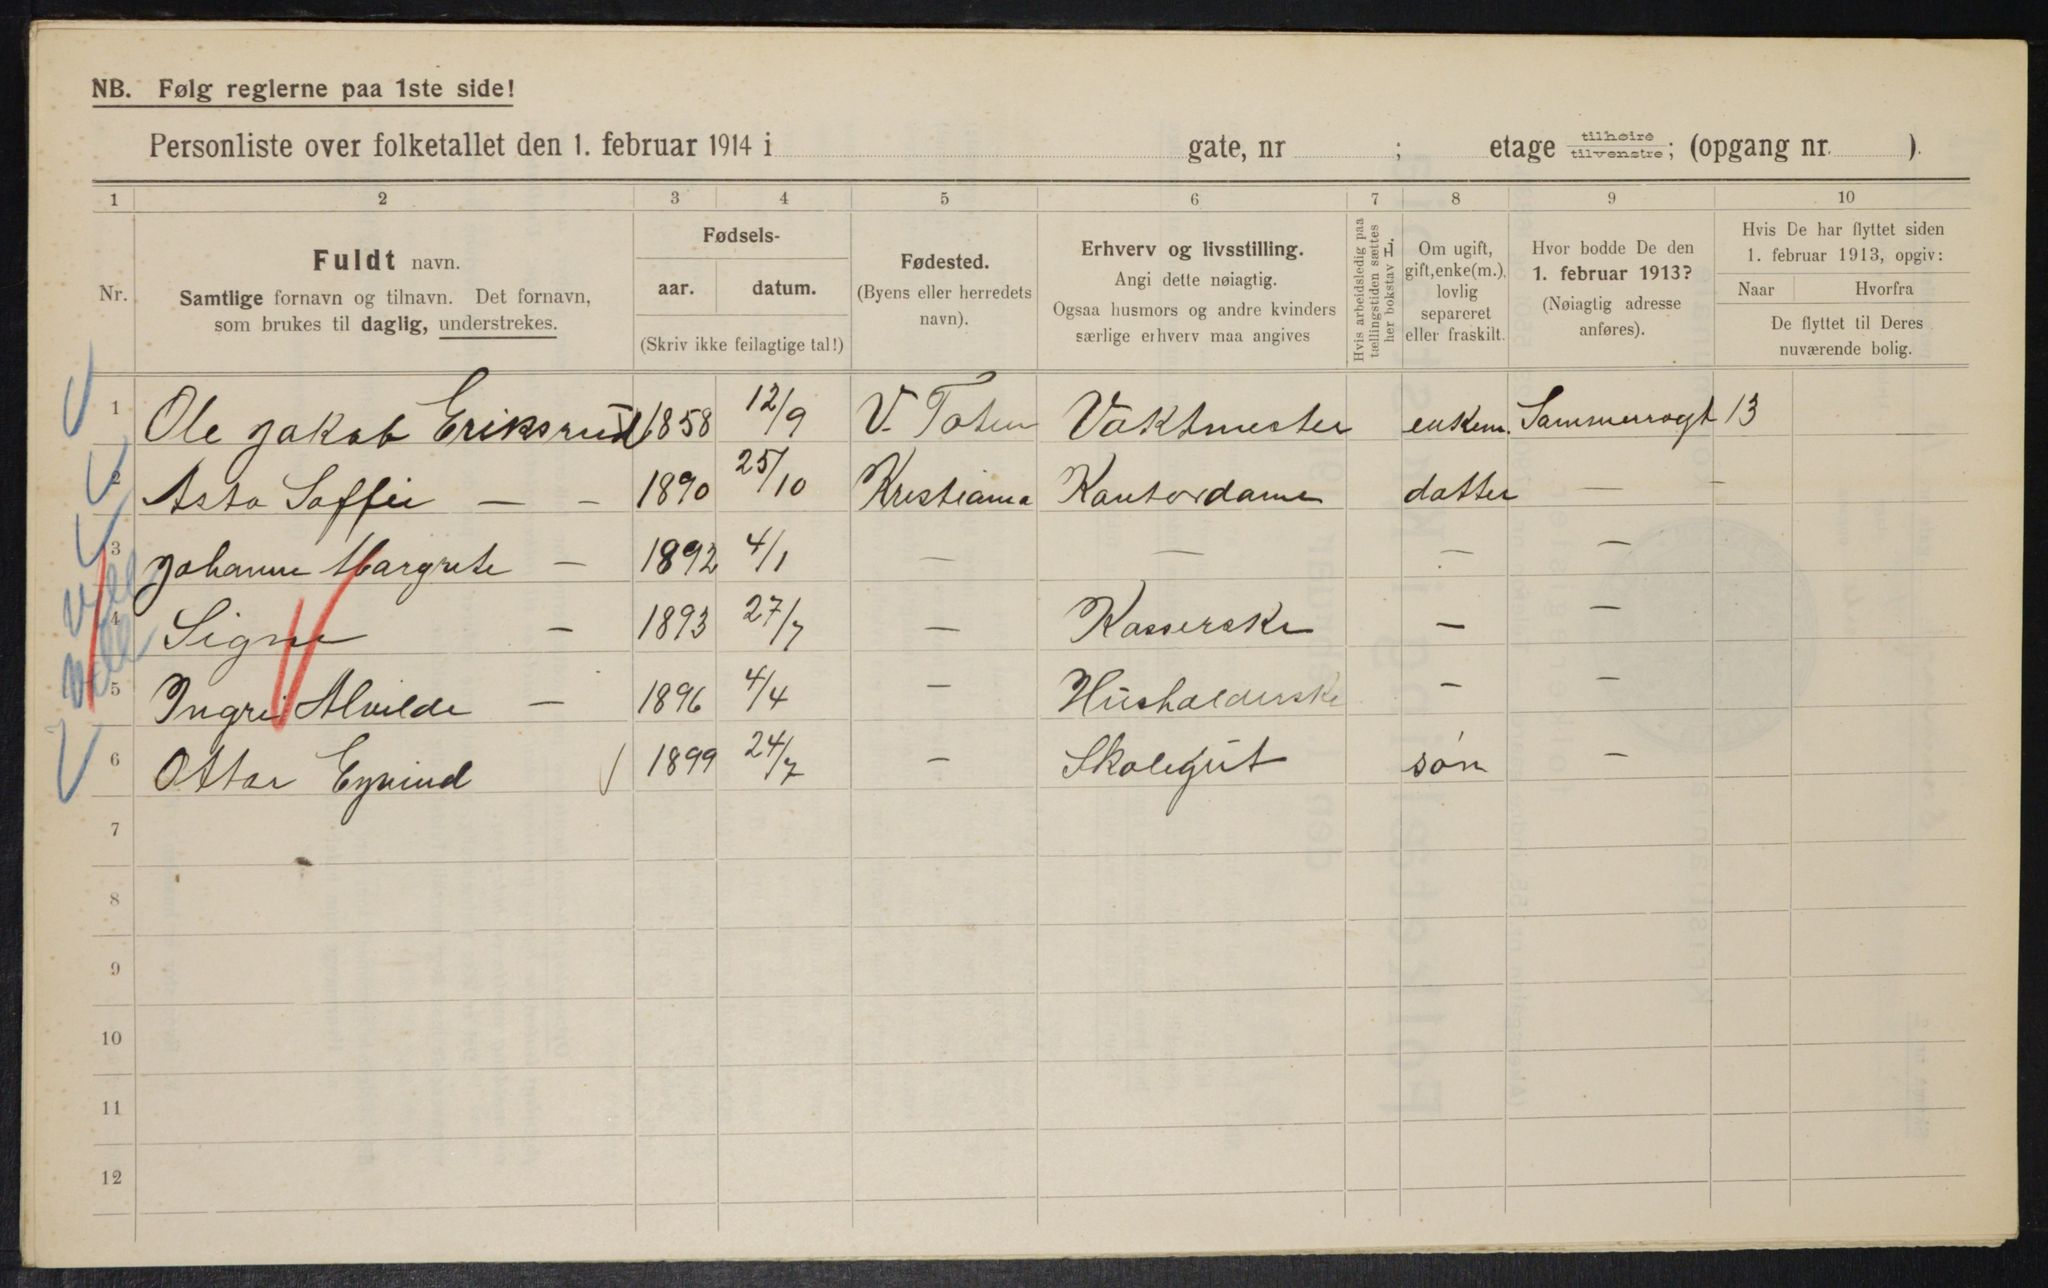 NB. Følg reglerne paa 1ste side!
Personliste over folketallet den 1. februar 1914 i gate, nr ; etage tilhøire tilvenstre; (opgang nr. ).
1 2 3 4 5 6 7 8 9 10
Nr.
Fuldt navn.
Samtlige fornavn og tilnavn. Det fornavn,
som brukes til daglig, understrekes.
Fødsels-
aar. datum.
(Skriv ikke feilagtige tal!)
Fødested.
(Byens eller herredets
navn).
Erhverv og livsstilling.
Angi dette nøiagtig.
Ogsaa husmors og andre kvinders
særlige erhverv maa angives
Hvis arbeidsledig paa
tællingstiden sættes
her bokstav L.
Om ugift,
gift, enke(m.),
lovlig
separeret
eller fraskilt.
Hvor bodde De den
1. februar 1913?
(Nøiagtig adresse
anføres).
Hvis De har flyttet siden
1. februar 1913, opgiv:
Naar Hvorfra
De flyttet til Deres
nuværende bolig.
1 Ole Jakob Eriksrud 1858 12/9 V. Toten Vaktmester enkem. Sommerrogt 13
2 Asta Soffie — — 1890 25/10 Kristiania Kontordame datter — –
3 Johanne Margrete — 1892 4/1 — — — —
4 Signe — 1893 27/7 — Kasserske — —
5 Ingri Alvilde — 1896 4/4 — Husholderske — —
6 Ottar Eyvind 1899 24/7 — Skolegut søn —
7
8
9
10
11
12